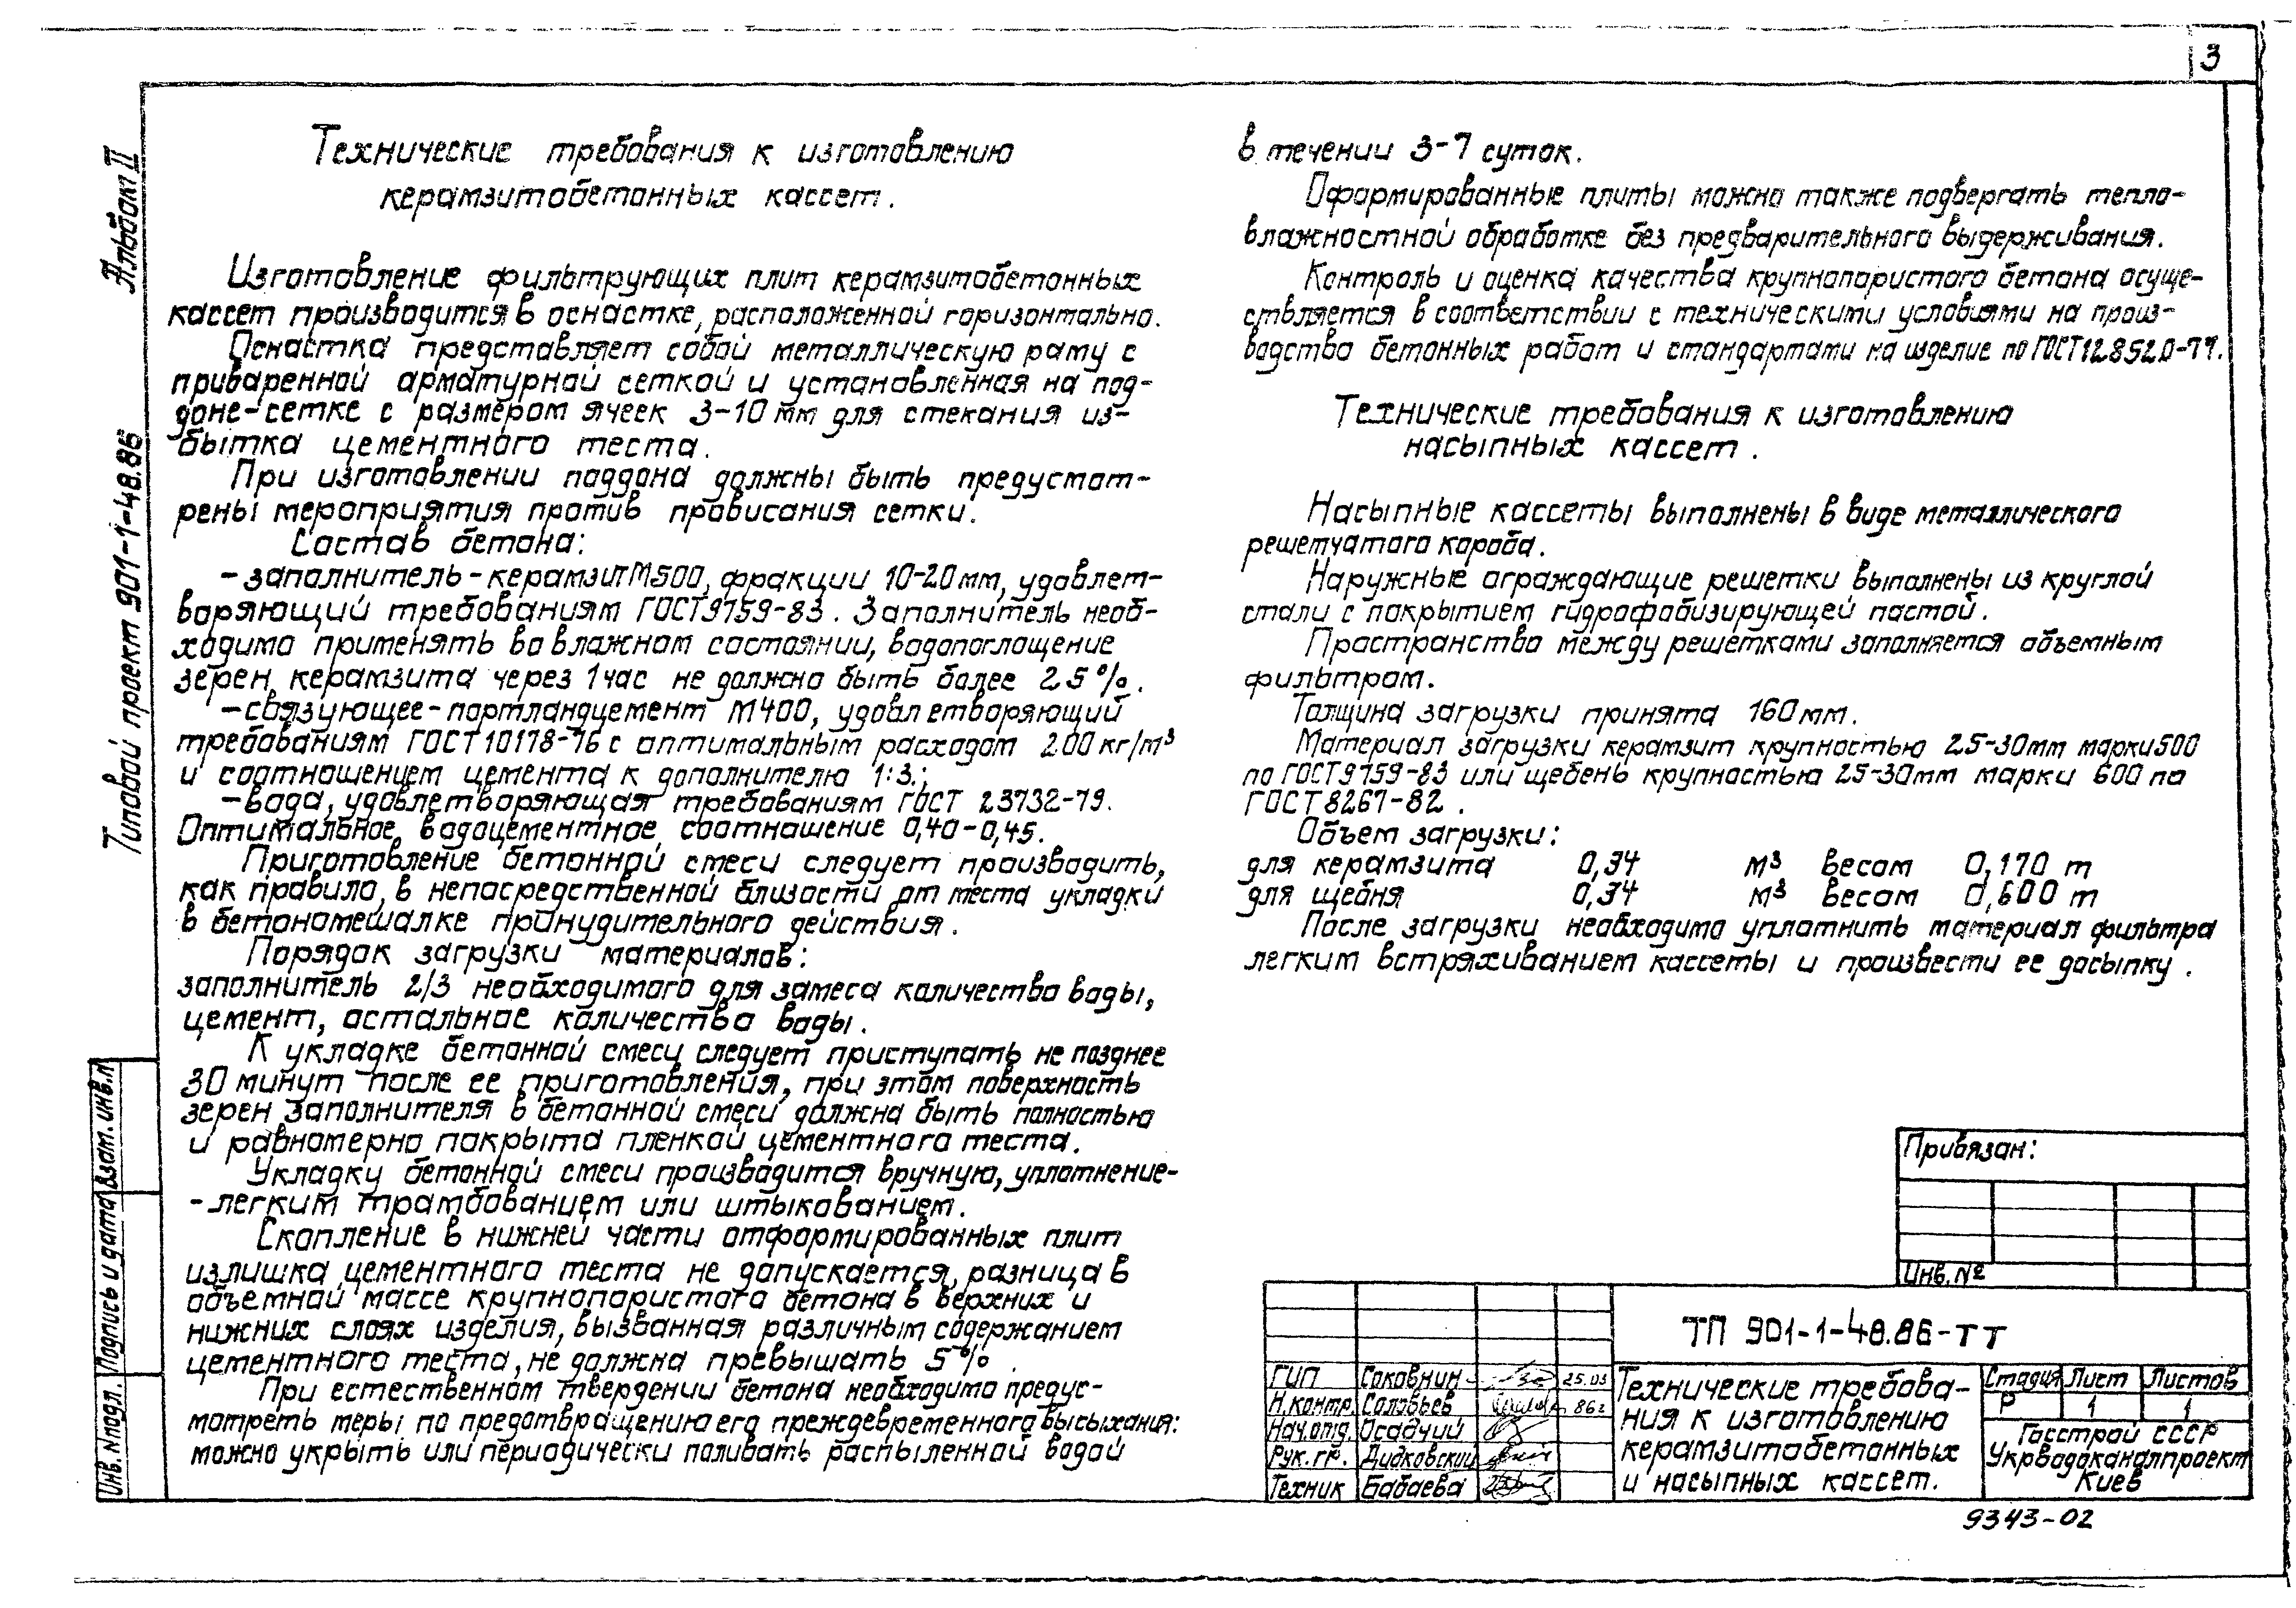 3
Альбом II
Типовой проект 901-1-48.86
Технические требования к изготовлению
керамзитобетонных кассет.
Изготовление фильтрующих плит керамзитобетонных
кассет производится в оснастке, расположенной горизонтально.
Оснастка представляет собой металлическую раму с
приваренной арматурной сеткой и установленная на под-
доне-сетке с размером ячеек 3-10 мм для стекания из-
бытка цементного теста.
При изготовлении поддона должны быть предусмот-
рены мероприятия против провисания сетки.
Состав бетона:
-заполнитель-керамзит М500, фракции 10-20мм, удовлет-
воряющий требованиям ГОСТ 9759-83. Заполнитель необ-
ходимо применять во влажном состоянии, водопоглощение
зерен керамзита через 1 час не должно быть более 25%.
-связующее-портландцемент М400, удовлетворяющий
требованиям ГОСТ 10178-76 с оптимальным расходом 200 кг/м³
и соотношением цемента к дополнителю 1:3.;
-вода, удовлетворяющая требованиям ГОСТ 23732-79.
Оптимальное водоцементное соотношение 0,40-0,45.
Приготовление бетонной смеси следует производить,
как правило, в непосредственной близости от места укладки
в бетономешалке принудительного действия.
Порядок загрузки материалов:
заполнитель 2/3 необходимого для замеса количества воды,
цемент, остальное количество воды.
К укладке бетонной смеси следует приступать не позднее
30 минут после ее приготовления, при этом поверхность
зерен заполнителя в бетонной смеси должна быть полностью
и равномерно покрыта пленкой цементного теста.
Укладку бетонной смеси производится вручную, уплотнение-
-легким трамбованием или штыкованием.
Скопление в нижней части отформированных плит
излишка цементного теста не допускается, разница в
объемной массе крупнопористого бетона в верхних и
нижних слоях изделия, вызванная различным содержанием
цементного теста, не должна превышать 5%.
При естественном твердении бетона необходимо предус-
мотреть меры по предотвращению его преждевременного высыхания:
можно укрыть или периодически поливать распыленной водой
в течении 3-7 суток.
Оформированные плиты можно также подвергать тепло-
влажностной обработке без предварительного выдерживания.
Контроль и оценка качества крупнопористого бетона осуще-
ствляется в соответствии с техническими условиями на произ-
водство бетонных работ и стандартами на изделие по ГОСТ 12.852.0-77.
Технические требования к изготовлению
насыпных кассет.
Насыпные кассеты выполнены в виде металлического
решетчатого короба.
Наружные ограждающие решетки выполнены из круглой
стали с покрытием гидрофобизирующей пастой.
Пространство между решетками заполняется объемным
фильтром.
Толщина загрузки принята 160мм.
Материал загрузки керамзит крупностью 25-30мм марки 500
по ГОСТ 9759-83 или щебень крупностью 25-30мм марки 600 по
ГОСТ 8267-82.
Объем загрузки:
для керамзита 0,34 м³ весом 0,170 т
для щебня 0,34 м³ весом 0,600 т
После загрузки необходимо уплотнить материал фильтра
легким встряхиванием кассеты и произвести ее досыпку.
Взам. инв.N
Подпись и дата
Инв. N подл.
Привязан:
Инв. №
ТП 901-1-48.86-ТТ
ГИП Саковнин 25.03
Н.контр. Соловьев 86г
Нач.отд. Осадчий
Рук.гр. Дидковский
Техник Бабаева
Технические требова-
ния к изготовлению
керамзитобетонных
и насыпных кассет.
Стадия Лист Листов
Р 1 1
Госстрой СССР
Укрводоканалпроект
Киев
9343-02